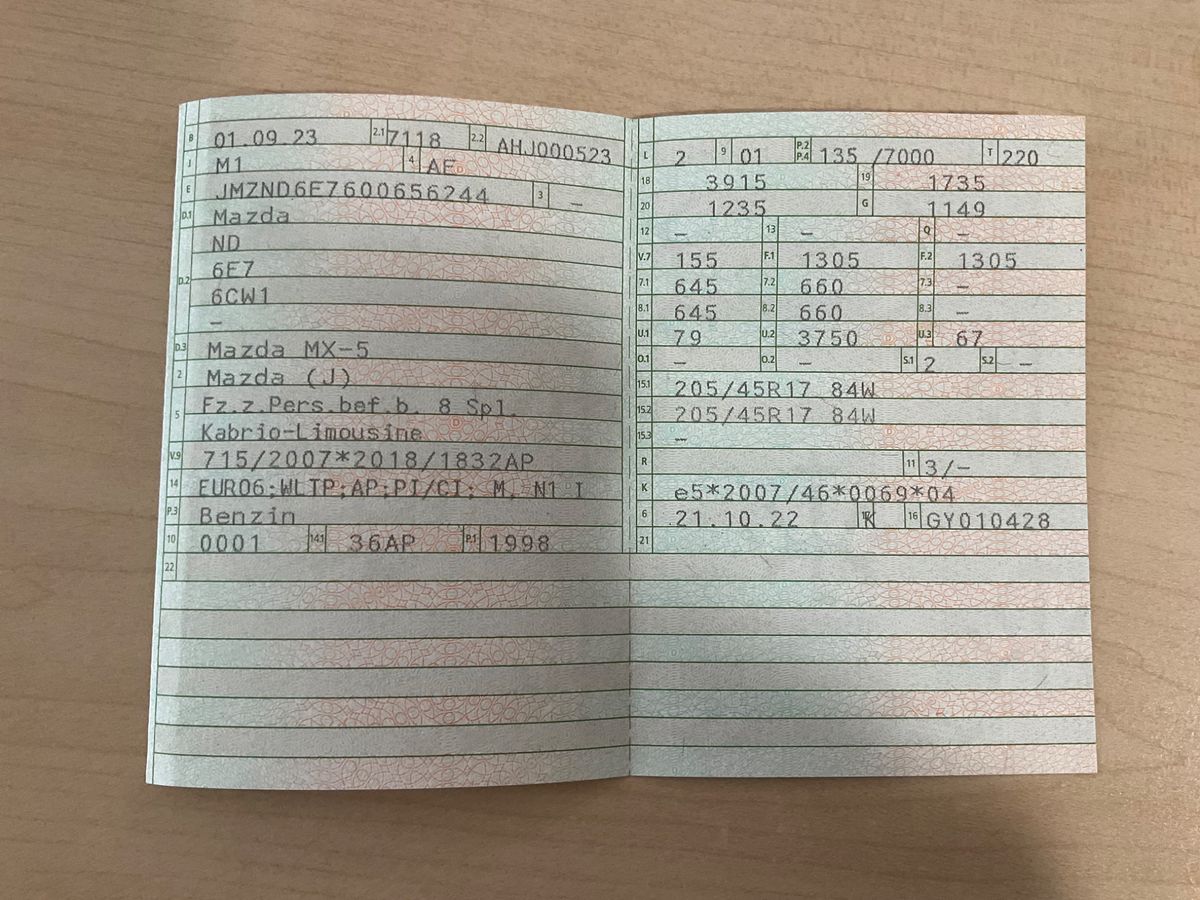 B 01.09.23 2.1 7118 2.2 AHJ000523
J M1 4 AF
E JMZND6E7600656244 3 –
D.1 Mazda
D.2 ND
6E7
6CW1
–
D.3 Mazda MX-5
2 Mazda (J)
5 Fz.z.Pers.bef.b. 8 Spl.
Kabrio-Limousine
V.9 715/2007*2018/1832AP
14 EURO6;WLTP;AP;PI/CI; M, N1 I
P.3 Benzin
10 0001 14.1 36AP P.1 1998
22
L 2 9 01 P.2 P.4 135 /7000 T 220
18 3915 19 1735
20 1235 G 1149
12 – 13 – Q –
V.7 155 F.1 1305 F.2 1305
7.1 645 7.2 660 7.3 –
8.1 645 8.2 660 8.3 –
U.1 79 U.2 3750 U.3 67
O.1 – O.2 – S.1 2 S.2 –
15.1 205/45R17 84W
15.2 205/45R17 84W
15.3 –
R 11 3/–
K e5*2007/46*0069*04
6 21.10.22 K 16 GY010428
21